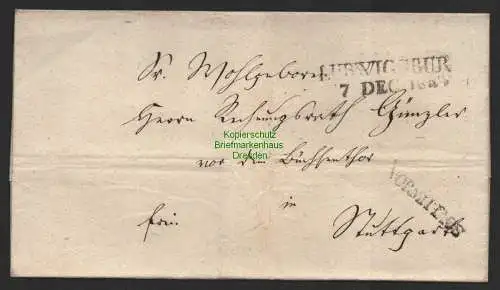 Sr. Wohlgeboren
LUDWIGSBURG
7 DEC
Herrn Rechnungsrath Günzler
Kopierschutz
Briefmarkenhaus
Dresden
vor dem Büchsenthor
in
frei
Stuttgart